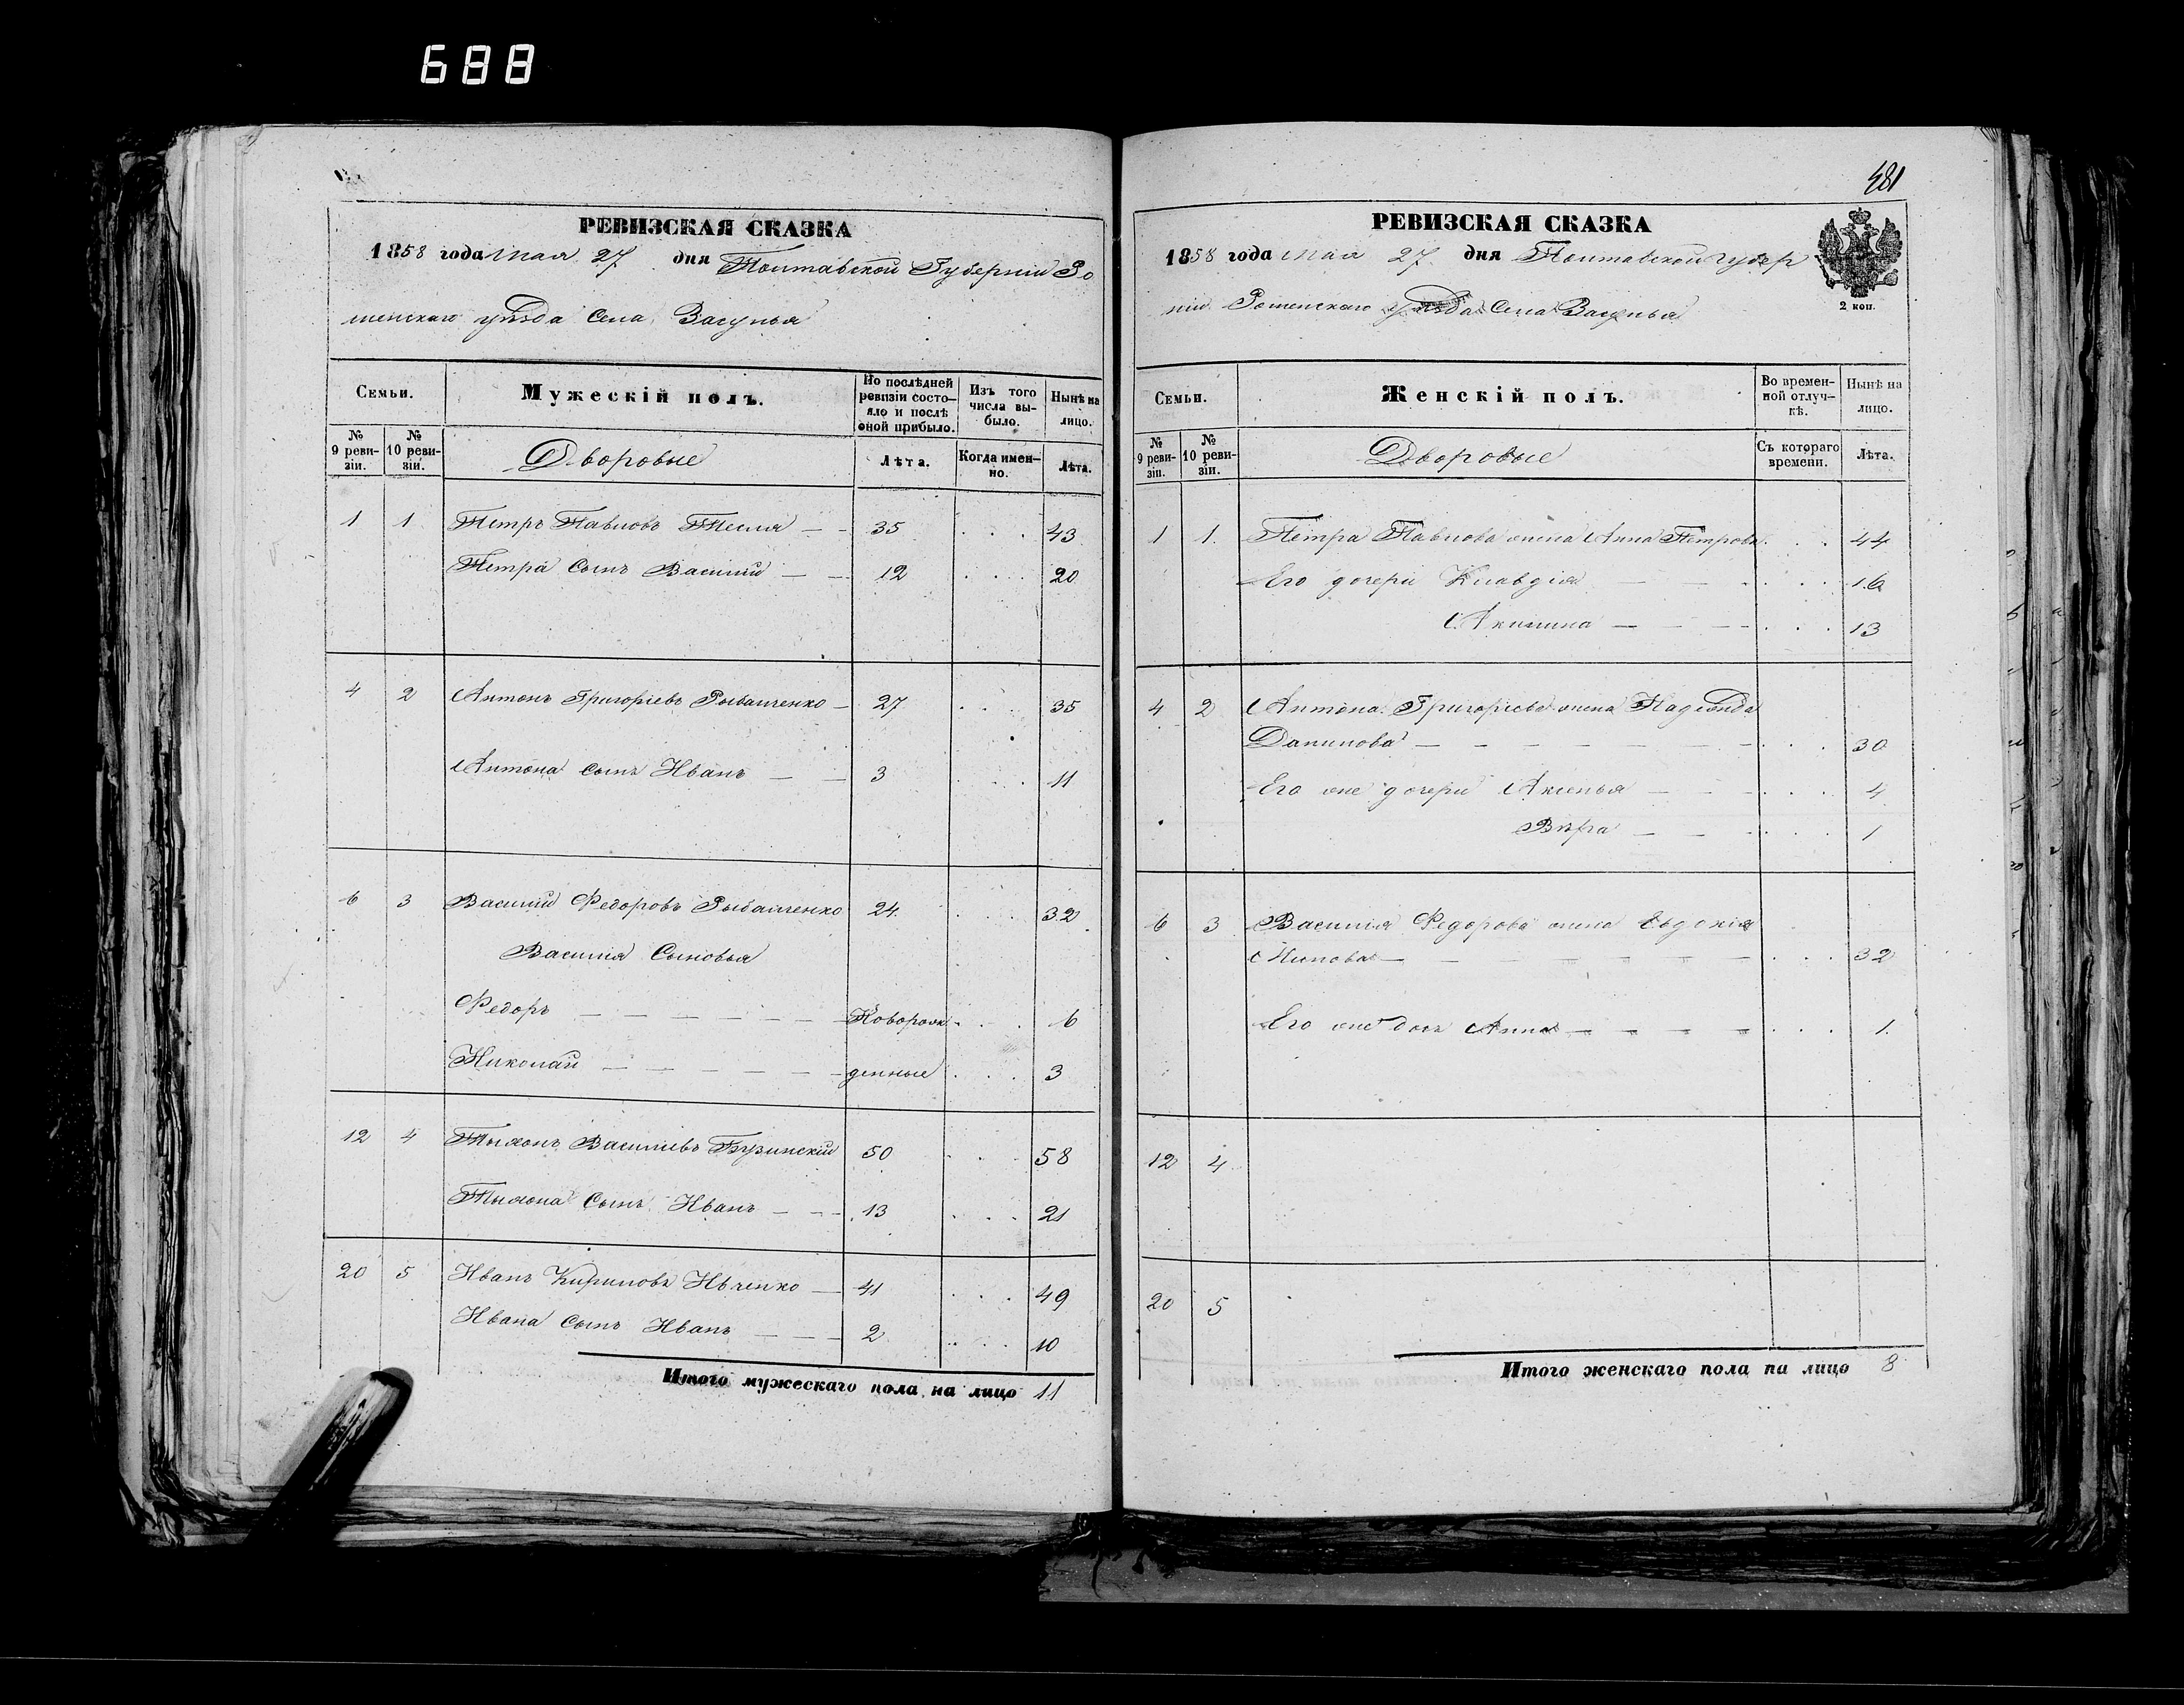 688
РЕВИЗСКАЯ СКАЗКА
1858 года Мая 27 дня Полтавской Губерніи Ро
менскаго уѣзда Села Засулья
Семьи.
Мужескій полъ.
По послѣдней ревизіи состо-
яло и послѣ
оной прибыло.
Изъ того
числа вы-
было.
Нынѣ на
лицо.
№
9 реви-
зіи.
№
10 реви-
зіи.
Дворовые
Лѣта.
Когда имен-
но.
Лѣта.
1 1 Петръ Павловъ Тесля 35 43
Петра Сынъ Василій 12 20
4 2 Антонъ Григоріевъ Рыбалченко 27 35
Антона сынъ Иванъ 3 11
6 3 Василій Федоровъ Рыбалченко 24 32
Василія Сыновья
Федоръ Новорож- 6
Николай денные 3
12 4 Тихонъ Василіевъ 50 58
Тихона Сынъ Иванъ 13 21
20 5 Иванъ Кириловъ Ивченко 41 49
Ивана Сынъ Иванъ 2 10
Итого мужескаго пола на лицо 11
481
РЕВИЗСКАЯ СКАЗКА
1858 года Мая 27 дня Полтавской Губер
ніи Роменскаго уѣзда Села Засулья
2 коп.
Семьи.
Женскій полъ.
Во времен-
ной отлуч-
кѣ.
Нынѣ на
лицо.
№
9 реви-
зіи.
№
10 реви-
зіи.
Дворовые
Съ котораго
времени.
Лѣта.
1 1 Петра Павлова жена Анна Петрова 44
Его дочери Клавдія 16
Акилина 13
4 2 Антона Григоріева жена Надежда
Данилова 30
Его же дочери Аксенья 4
Вѣра 1
6 3 Василія Федорова жена Евдокія
32
Его же дочь Анна 1
12 4
20 5
Итого женскаго пола на лицо 8